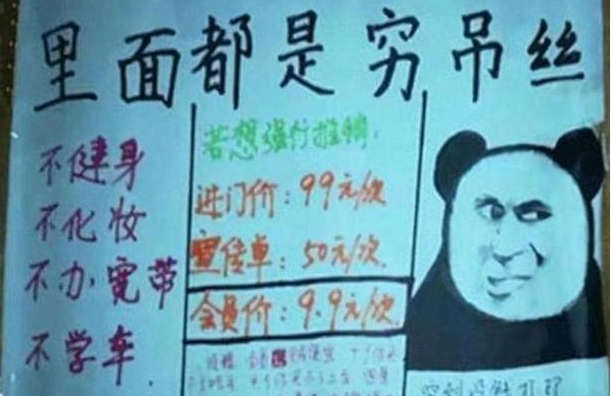 里面都是穷吊丝
不健身
不化妆
不办宽带
不学车.
若想强行推销:
进门价:99元/次
宣传单:50元/次.
会员价:9.9元/次.